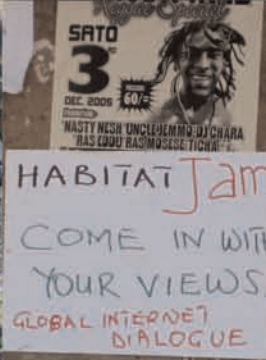 Reggae Special
SATO
3RD
DEC. 2005
60/=
NASTY NESH UNCLE JEMMO DJ CHARA
RAS EDDU RAS MOSESE TICHA
HABITAT Jam
COME IN WITH
YOUR VIEWS.
GLOBAL INTERNET
DIALOGUE